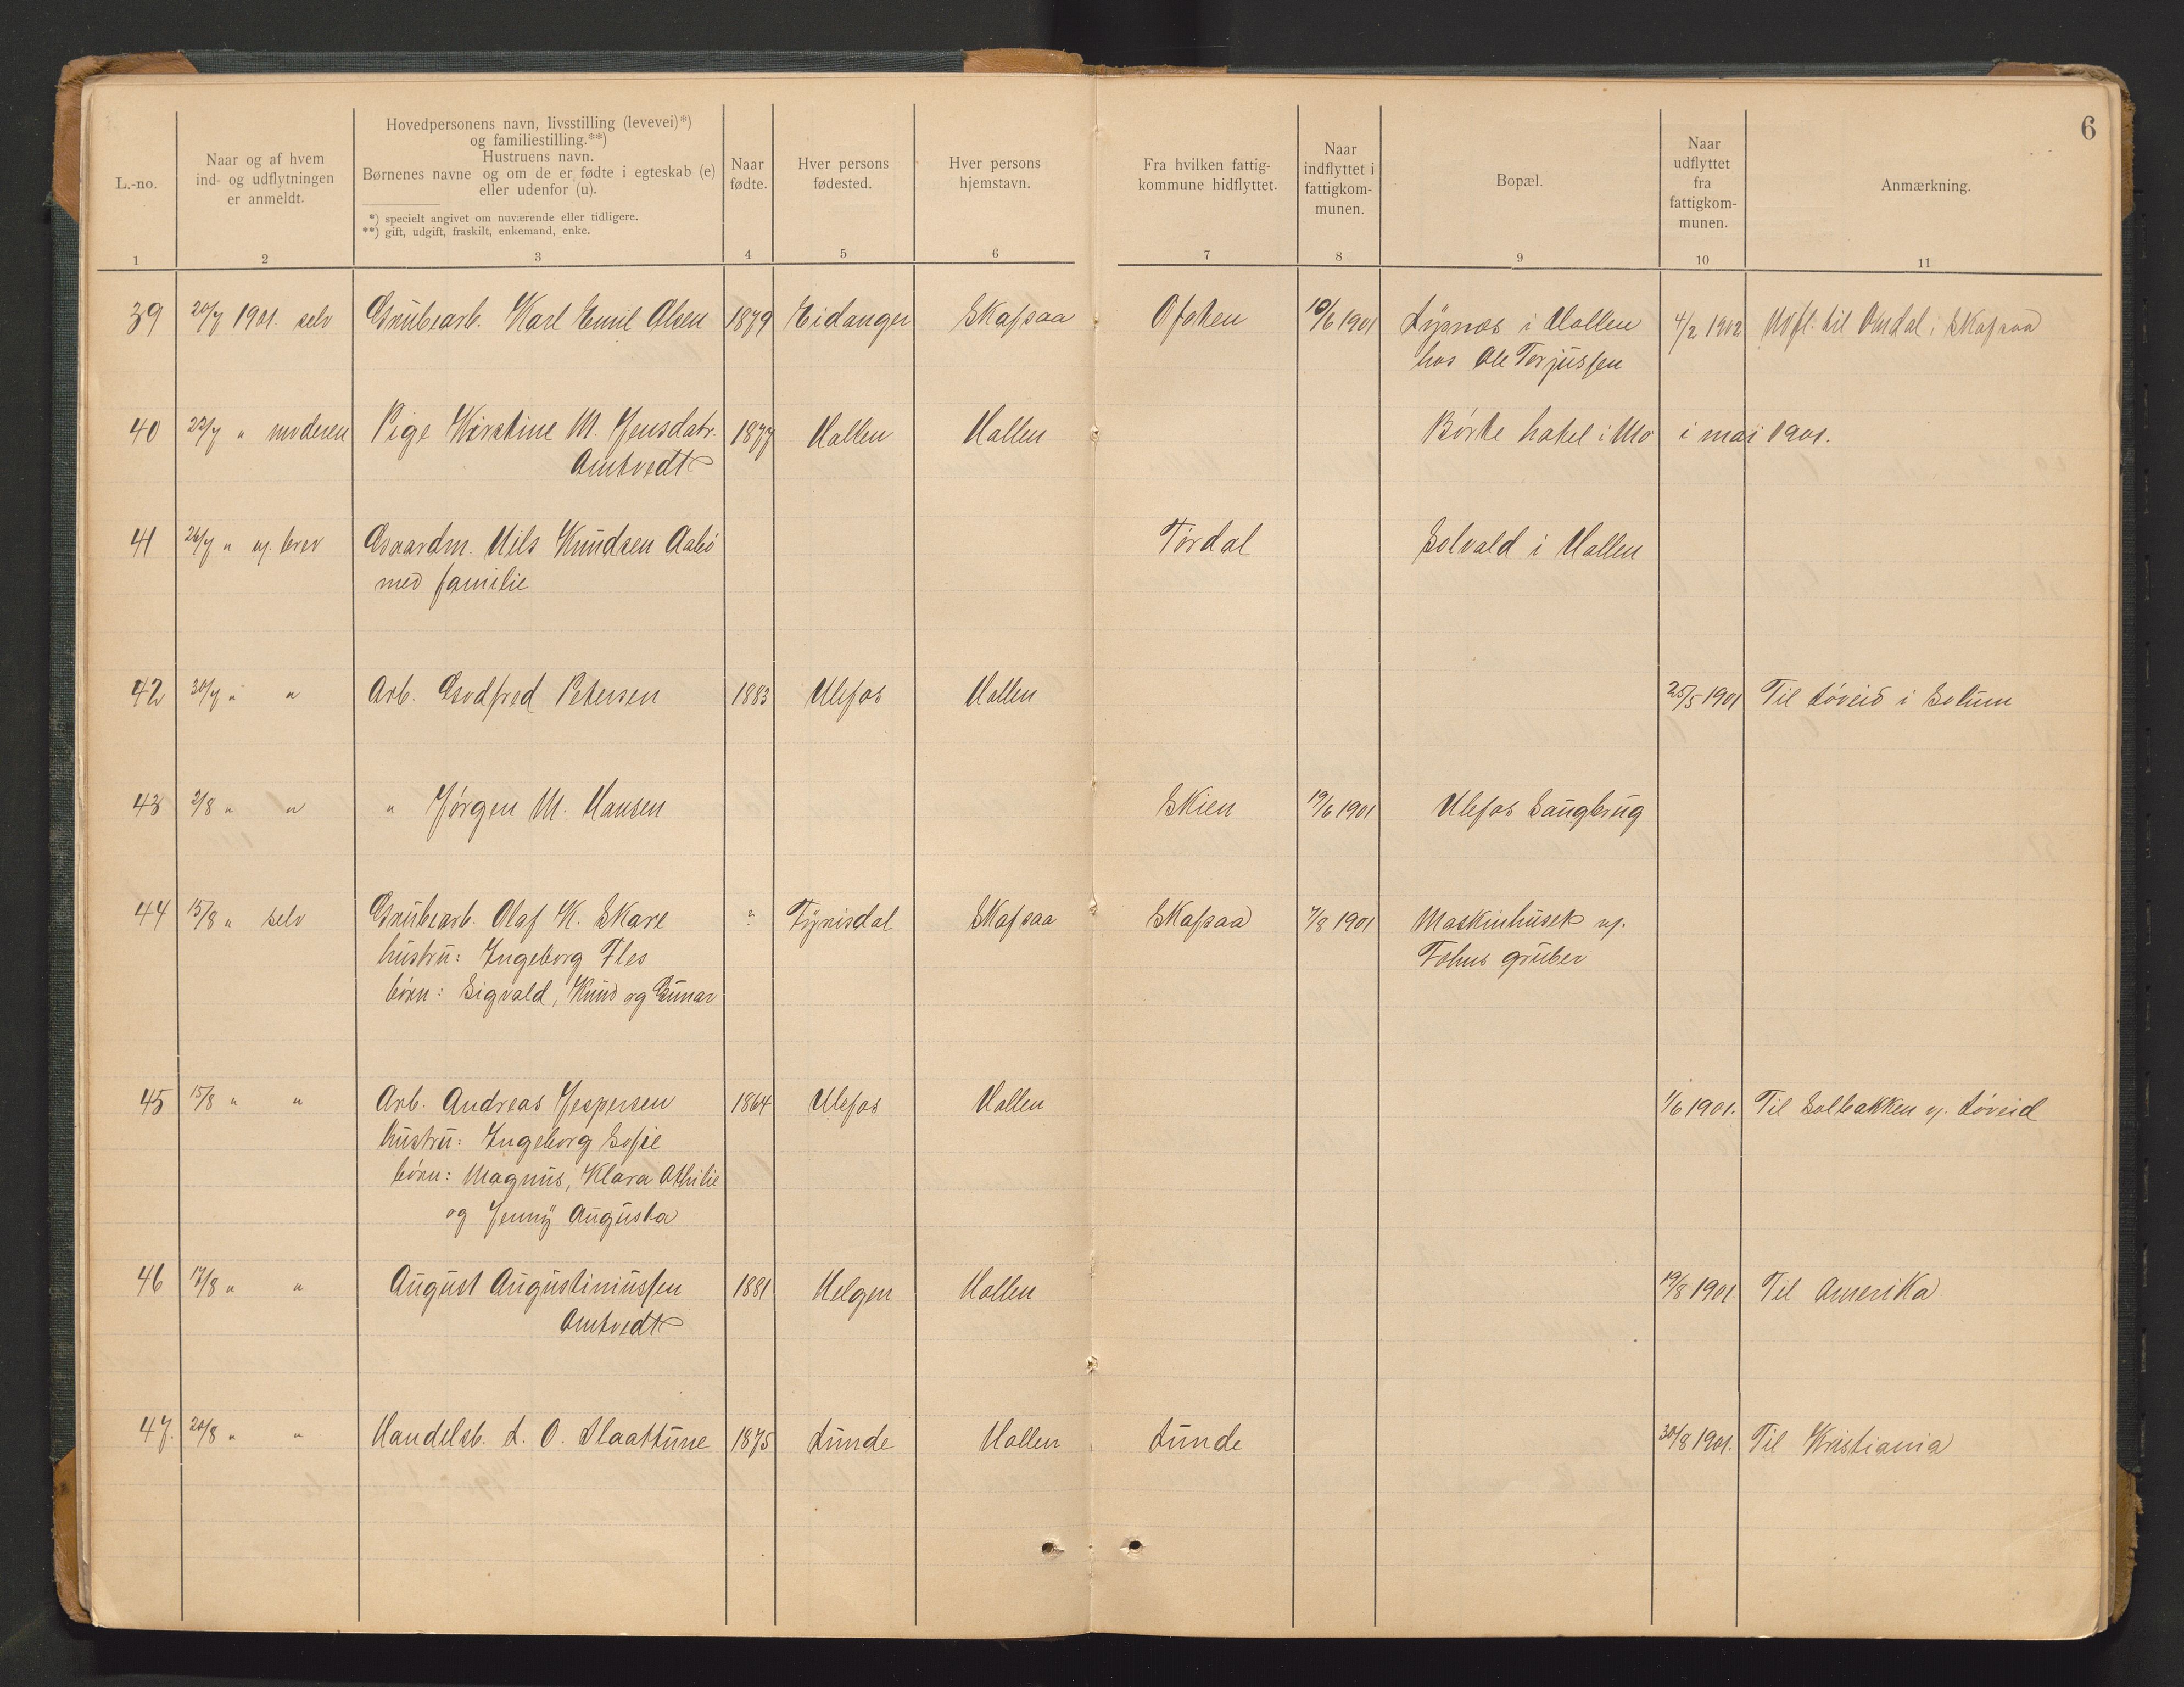 6
L.-no.
Naar og af hvem
ind- og udflytningen
er anmeldt.
Hovedpersonens navn, livsstilling (levevei)*)
og familiestilling.**)
Hustruens navn.
Børnenes navne og om de er fødte i egteskab (e)
eller udenfor (u).
*) specielt angivet om nuværende eller tidligere.
**) gift, udgift, fraskilt, enkemand, enke.
Naar
fødte.
Hver persons
fødested.
Hver persons
hjemstavn.
Fra hvilken fattig-
kommune hidflyttet.
Naar
indflyttet i
fattigkom-
munen.
Bopæl.
Naar
udflyttet
fra
fattigkom-
munen.
Anmærkning.
1 2 3 4 5 6 7 8 9 10 11
39 20/7 1901. selv Grubearb. Karl Emil Olsen 1879 Eidanger Skafsaa Ofoten 10/6 1901 Lysnæs i Hollen 4/2 1902 Udfl. til Omdal i Skafsaa
hos Ole Terjussen
40 22/7 " moderen Pige Kirstine M. Jensdatr. 1877 Hollen Hollen Børte hotel i Mo i mai 1901.
Omtvedt
41 26/7 " pr. brev Gaardm. Nils Knudsen Aabø Tørdal Solvald i Hollen
med familie
42 30/7 " " Arb. Godfred Petersen 1883 Ulefos Hollen 25/5 1901 Til Løveid i Solum
43 2/8 " " " Jørgen M. Hansen Skien 19/6 1901 Ulefos Saugbrug
44 15/8 " selv Grubearb. Olaf K. Skare ? Fyrisdal Skafsaa Skafsaa 7/8 1901 Maskinhuset v.
hustru: Ingeborg Fles Fehns gruber
børn: Sigvald, Knud og Gunar
45 15/8 " " Arb. Andreas Jespersen 1864 Ulefos Hollen 1/6 1901. Til Solbakken v. Løveid
hustru: Ingeborg Sofie
børn: Magnus, Klara Othilie
og Jenny Augusta
46 17/8 " " August Augustinussen 1881 Helgen Hollen 19/8 1901. Til Amerika
Omtvedt
47. 20/8 " " Handelsb. L. O. Slaattune 1875 Lunde Hollen Lunde 30/8 1901. Til Kristiania